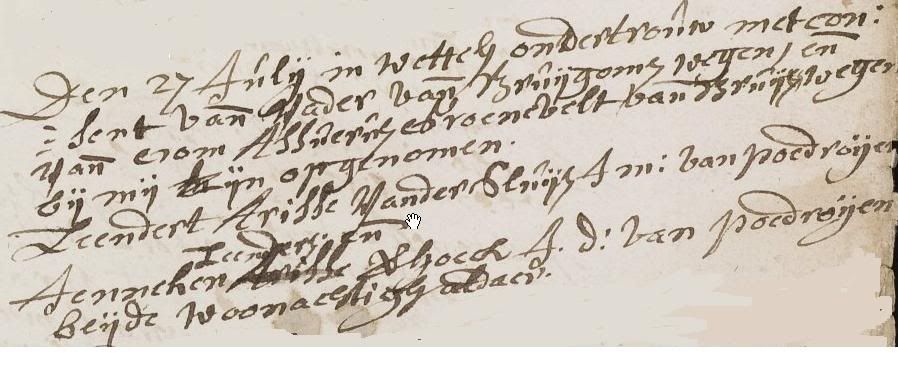 Den 27 Julij in wettelt ondertrouw met con:
= sent van Vader van Bruijgoms wegen, en
van Oom Assuerus Groenevelt van Bruijts wegen
bij mij zijn opgenomen.
Leendert Arisse Vander Sluijs J m: van poedroijen
Leenders en
Jenneken Arisse Schoeck J. d: van poedroijen
beijde woonachtigh aldaer.